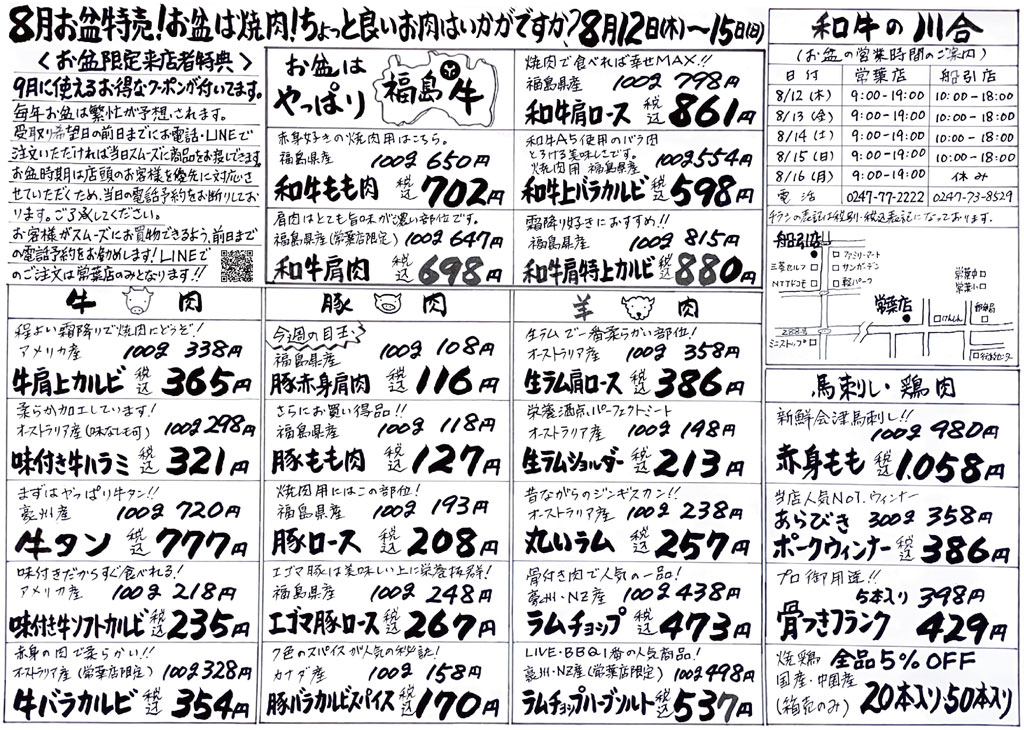 8月お盆特売!お盆は焼肉!ちょっと良いお肉はいかがですか?8月12日(木)〜15日(日)
<お盆限定来店者特典>
9月に使えるお得なクーポンが付いてます。
毎年お盆は繁忙が予想されます。
受取り希望日の前日までにお電話・LINEで
注文いただければ当日スムーズに商品をお渡しできます。
お盆時期は店頭のお客様を優先に対応さ
せていただくため、当日の電話予約をお断りしてお
ります。ご了承してください。
お客様がスムーズにお買物できるよう、前日まで
の電話予約をお勧めします!LINEで
のご注文は常葉店のみとなります!!
お盆は
やっぱり
福島牛
焼肉で食べれば幸せMAX!!
福島県産 100g 798円
和牛肩ロース 税込 861円
赤身好きの焼肉用はこちら。
福島県産 100g 650円
和牛もも肉 税込 702円
和牛A5使用のバラ肉
とろける美味しさです。
焼肉用 福島県産 100g 554円
和牛上バラカルビ 税込 598円
肩肉はとても旨味が濃い部位です。
福島県産(常葉店限定) 100g 647円
和牛肩肉 税込 698円
霜降り好きにおすすめ!!
福島県産 100g 815円
和牛肩特上カルビ 税込 880円
和牛の川合
(お盆の営業時間のご案内)
日付 常葉店 船引店
8/12(木) 9:00-19:00 10:00-18:00
8/13(金) 9:00-19:00 10:00-18:00
8/14(土) 9:00-19:00 10:00-18:00
8/15(日) 9:00-19:00 10:00-18:00
8/16(月) 9:00-19:00 休み
電話 0247-77-2222 0247-73-8529
チラシの表記は税別・税込表記になっております。
船引店
ファミリーマート
三菱セルフ
サンガーデン
NTTドコモ
軽パーク
常葉中
常葉小
常葉店
けんしん
郵便局
288号
ミニストップ
行政センター
牛肉
程よい霜降りで焼肉にどうぞ!
アメリカ産 100g 338円
牛肩上カルビ 税込 365円
柔らか加工しています!
オーストラリア産(味なしも可) 100g 298円
味付き牛ハラミ 税込 321円
まずはやっぱり牛タン!!
豪州産 100g 720円
牛タン 税込 777円
味付きだからすぐ食べれる!
アメリカ産 100g 218円
味付き牛ソフトカルビ 税込 235円
赤身の肉で柔らかい!!
オーストラリア産(常葉店限定) 100g 328円
牛バラカルビ 税込 354円
豚肉
今週の目玉
福島県産 100g 108円
豚赤身肩肉 税込 116円
さらにお買い得品!!
福島県産 100g 118円
豚もも肉 税込 127円
焼肉用にはこの部位!
福島県産 100g 193円
豚ロース 税込 208円
エゴマ豚は美味しい上に栄養抜群!
福島県産 100g 248円
エゴマ豚ロース 税込 267円
7色のスパイスが人気の秘訣!
カナダ産 100g 158円
豚バラカルビスパイス 税込 170円
羊肉
生ラムで一番柔らかい部位!
オーストラリア産 100g 358円
生ラム肩ロース 税込 386円
栄養満点、パーフェクトミート
オーストラリア産 100g 198円
生ラムショルダー 税込 213円
昔ながらのジンギスカン!!
オーストラリア産 100g 238円
丸いラム 税込 257円
骨付き肉で人気の一品!
豪州・NZ産 100g 438円
ラムチョップ 税込 473円
LIVE・BBQ1番の人気商品!
豪州・NZ産(常葉店限定) 100g 498円
ラムチョップハーブソルト 税込 537円
馬刺し・鶏肉
新鮮会津馬刺し!!
100g 980円
赤身もも 税込 1.058円
当店人気No1.ウィンナー
あらびき 300g 358円
ポークウィンナー 税込 386円
プロ御用達!!
5本入り 398円
骨つきフランク 429円
焼鶏 全品5%OFF
国産・中国産
(箱売のみ) 20本入り・50本入り